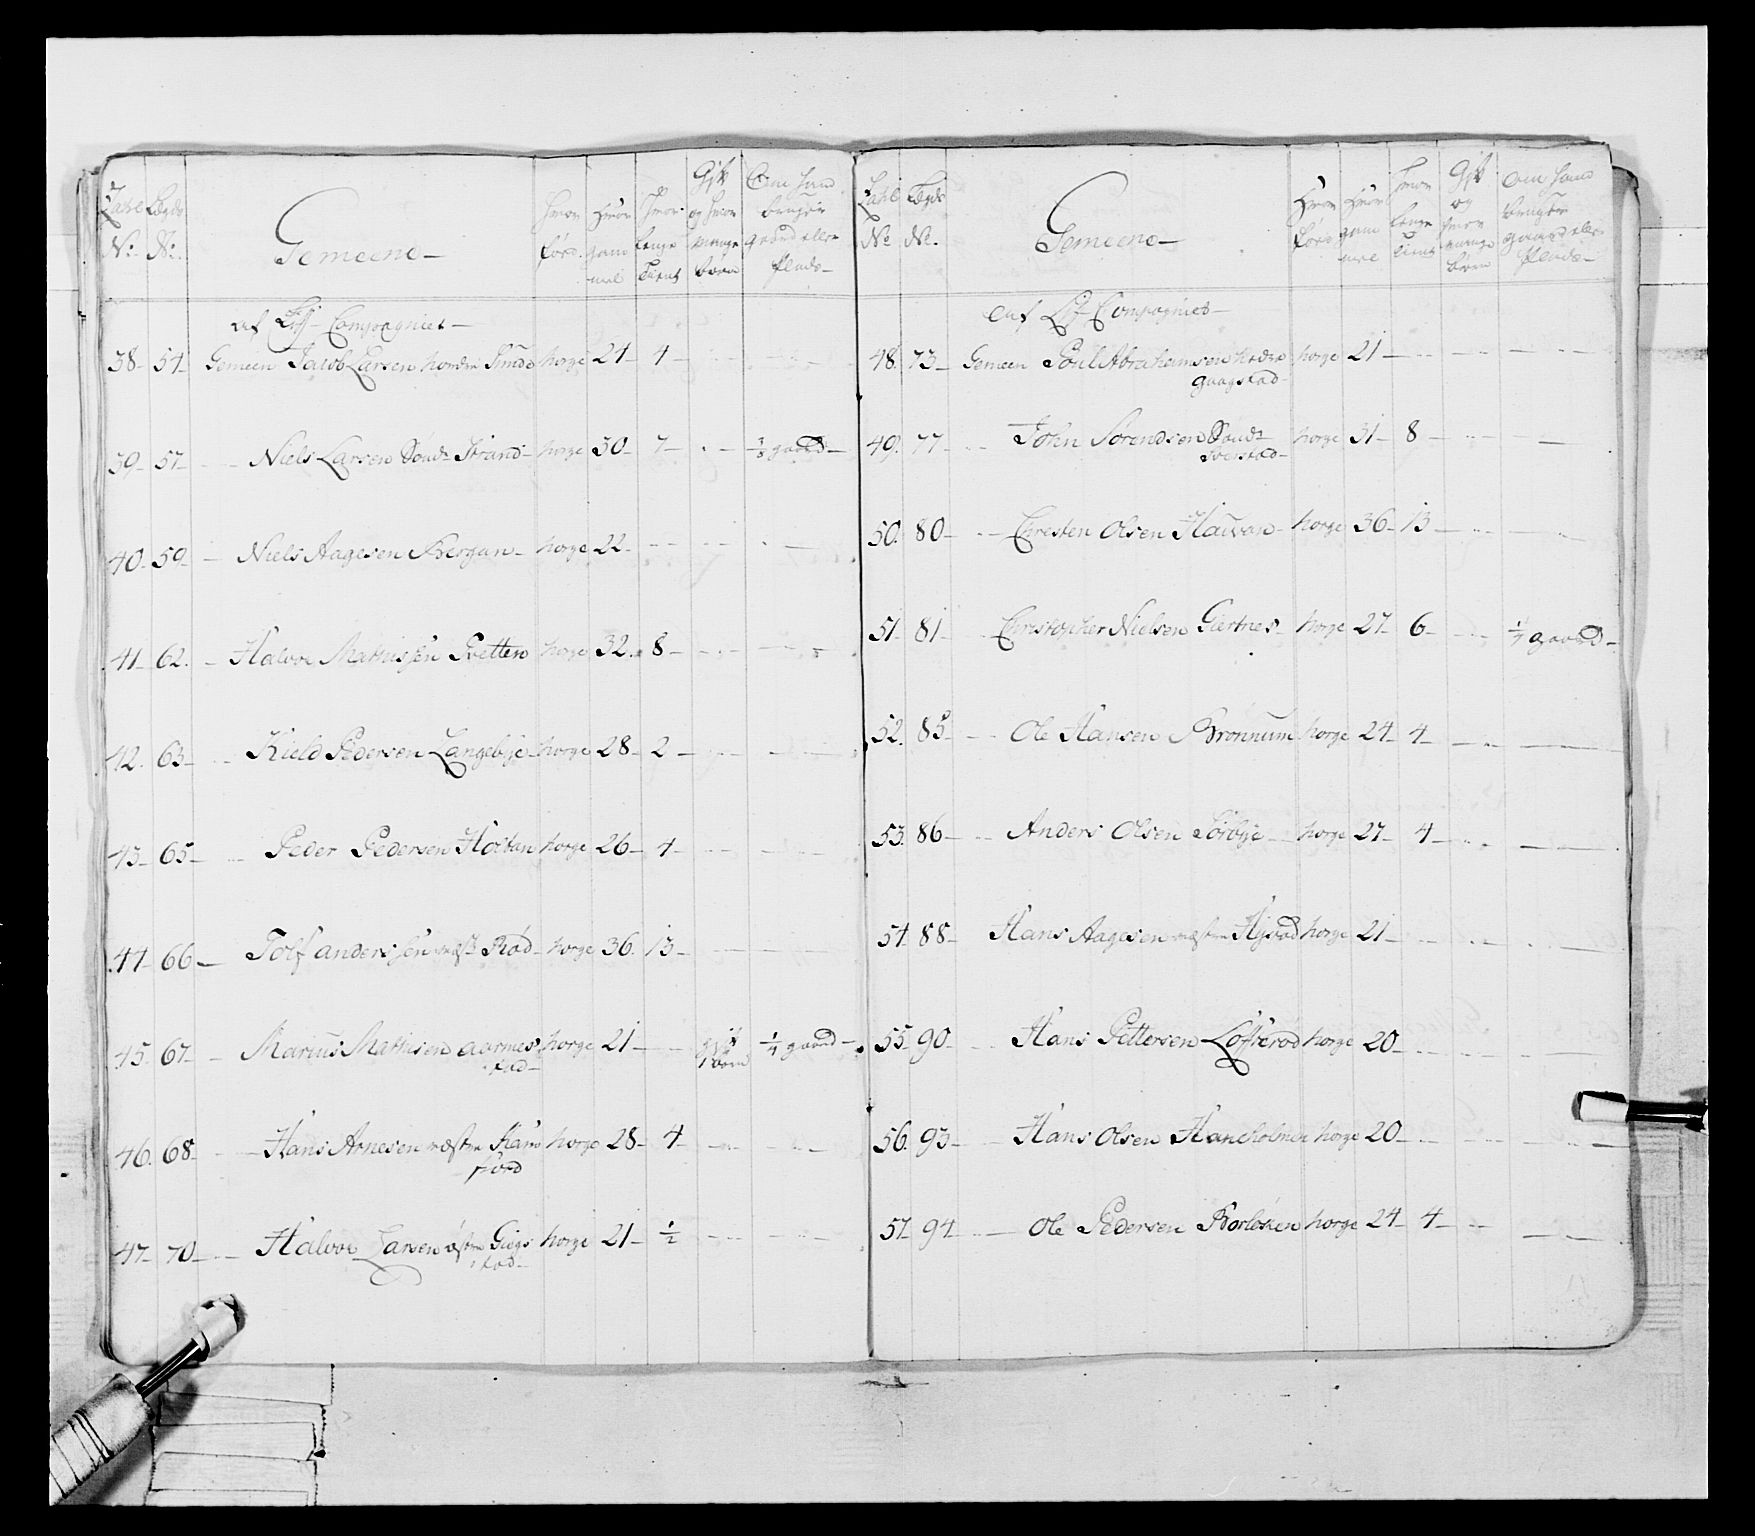 Tahl No: Legds No: Gemeene Hvor fød. Hvor gam mel Hvor lenge tient Gift og hvor mange børn Om hand bruger gaard eller Plads
af Lif Compagniet
38 54 Gemeen Jacob Larsen nordre Sunde norge 24 4
39 57 Niels Larsen Sønd: Strand norge 30 7 1/3 gaard
40 59 Niels Aagesen Bergan norge 22
41 62 Halvor Mathisen Tvetten norge 32 8
42 63 Kield Pedersen Langebye norge 28 2
43 65 Peder Pedersen Hostan norge 26 4
44 66 Tolf anderssen væst: Rød norge 36 13
45 67 Marius Mathisen aarmes norge 21 gift 1 barn 1/4 gaard
stad
46 68 Hans Arnesen væstre norge 28 4
47 70 Halvor Larsen østre Giegs norge 21 1/2
stad
Tahl No Legds No. Gemeene Hvor fød Hvor gam mel Hvor lenge tient Gift og hvor mange børn Om hand bruger gaard eller Plads
af Lif Compagniet
48 73 Gemeen Poul Abrahamsen nedre norge 21
gaagstad
49 77 John Sørendsen Sønd: norge 31 8
50 80 Christen Olsen norge 36 13
51 81 Christopher Nielsen Giertnes norge 27 6 1/4 gaard
52 85 Ole Hansen Brønnum norge 24 4
53 86 Anders Olsen Sørbye norge 27 4
54 88 Hans Aagesen væstre norge 21
55 90 Hans Pettersen Løfverød norge 20
56 93 Hans Olsen Haneholmen norge 20
57 94 Ole Pedersen norge 24 4